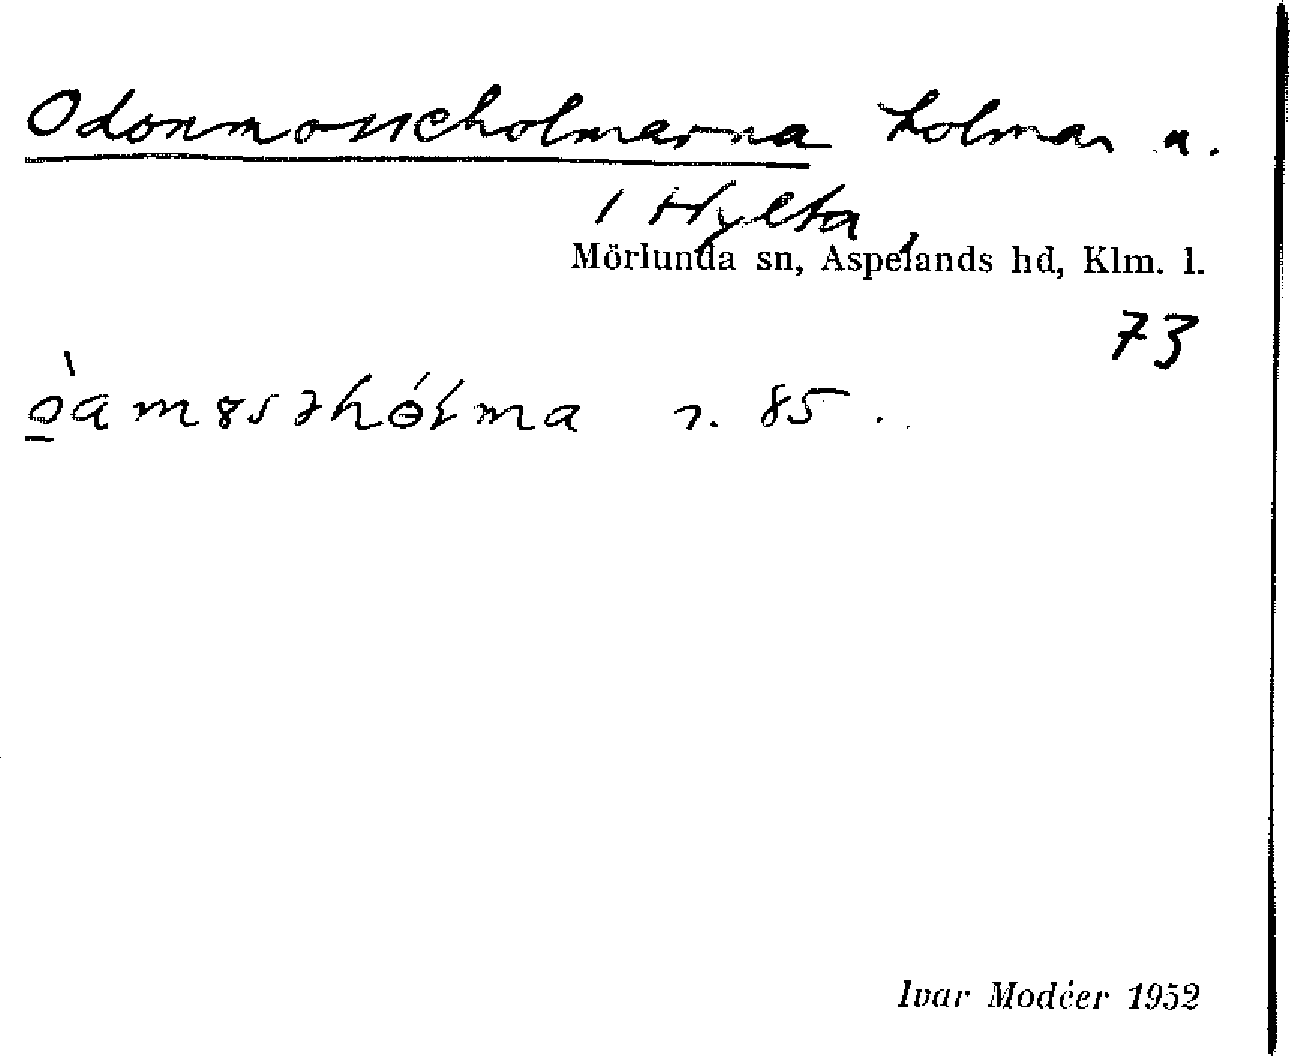 Odonmosseholmarna holmar u.
1 Hylta,
Mörlunda sn, Aspelands hd, Klm. l.
73
85.
Ivar Modéer 1952